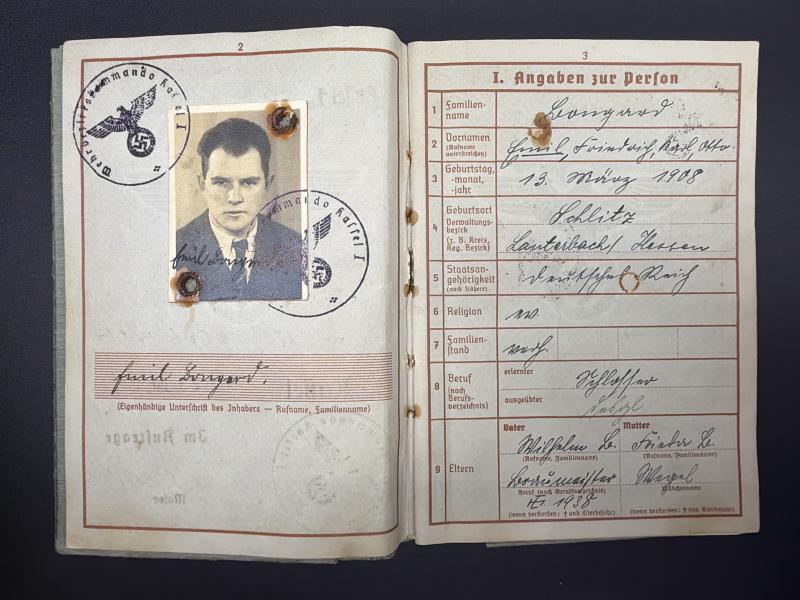 2
Wehrbezirkskommando Kassel I
Kassel I
Emil Bongard
Emil Bongard.
(Eigenhändige Unterschrift des Inhabers — Rufname, Familienname)
3
I. Angaben zur Person
1 Familien-
name
Bongard
2 Vornamen
(Rufname
unterstreichen)
Emil, Friedrich, Karl, Otto.
3 Geburtstag,
-monat,
-jahr
13. März 1908
4 Geburtsort
Verwaltungs-
bezirk
(z. B. Kreis,
Reg. Bezirk)
Schlitz
Lauterbach/ Hessen
5 Staatsan-
gehörigkeit
(auch frühere)
Deutsches Reich
6 Religion
ev.
7 Familien-
stand
verh.
8 Beruf
(nach
Berufs-
verzeichnis)
erlernter
Schlosser
ausgeübter
desgl
9 Eltern
Vater
Wilhelm B.
(Rufname, Familienname)
Braumeister
Beruf (nach Berufsverzeichnis)
1938
(wenn verstorben: † und Sterbejahr)
Mutter
Frieda B.
(Rufname, Familienname)
Wegel
Mädchenname
(wenn verstorben: † und Sterbejahr)